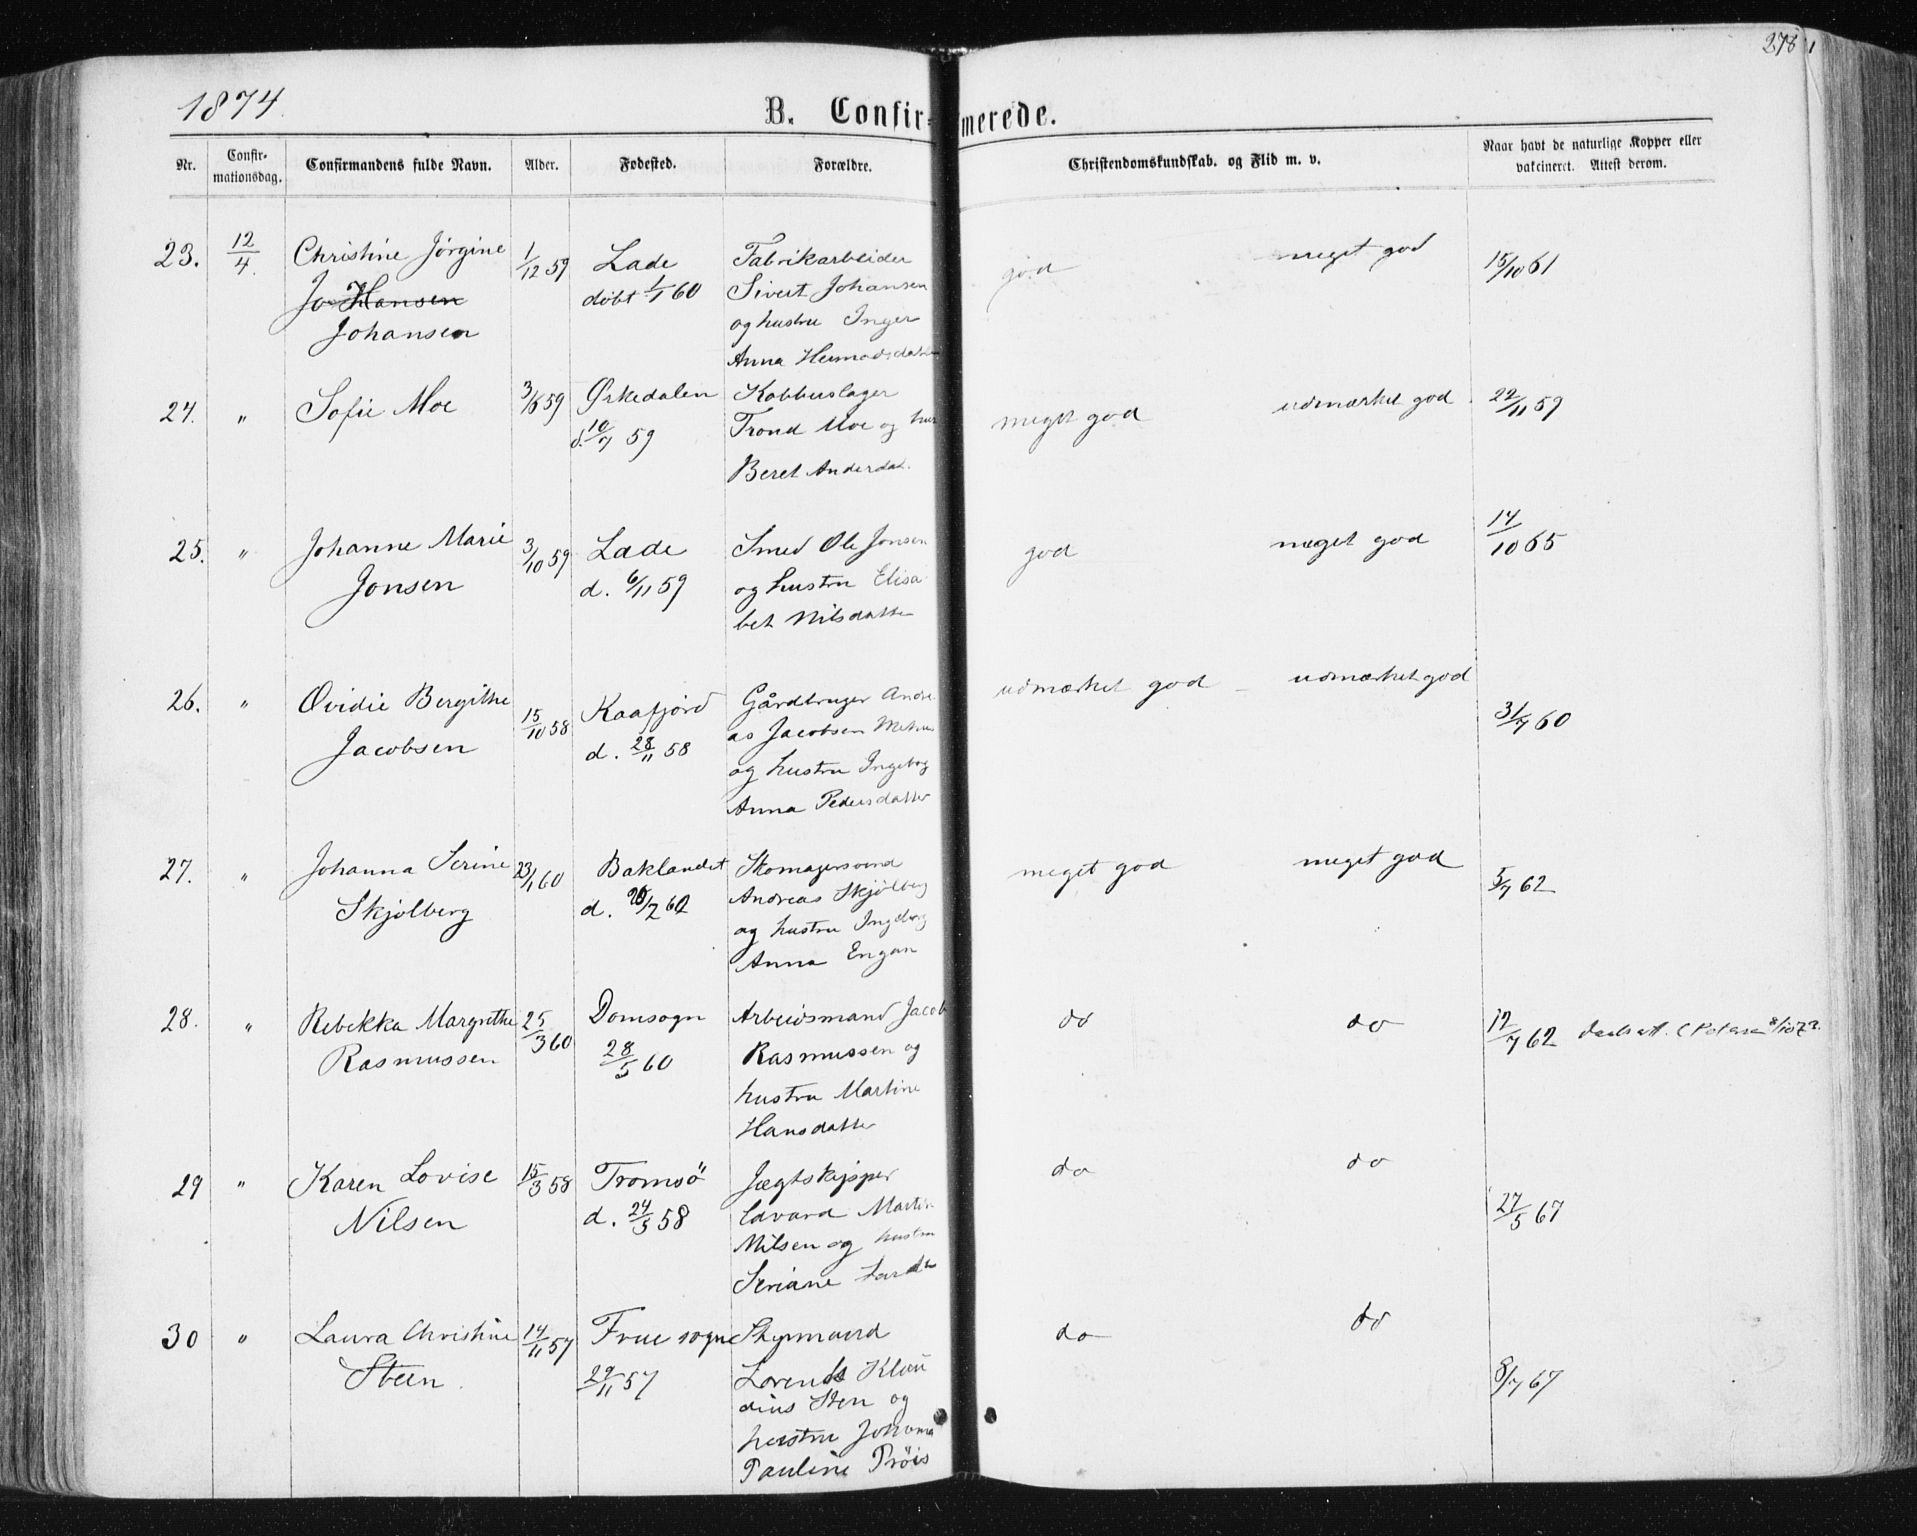 278
1874.
B. Confirmerede.
Nr.
Confirmationsdag.
Confirmandens fulde Navn.
Alder.
Fødested.
Forældre.
Christendomskundskab. og Flid m. v.
Naar havt de naturlige Kopper eller vakcineret. Attest derom.
23. 12/4. Christine Jørgine 1/12 59 Lade Fabrikarbeider god meget god 15/10 61
Jo Hansen døbt 1/1 60 Sivert Johansen
Johansen og hustru Inger
Anna
24. " Sofie Moe 3/6 59 Ørkedalen Kobberslager meget god udmærket god 22/11 59
d. 10/7 59 Trond Moe og hus
Beret Anderdat.
25. " Johanne Marie 3/10 59 Lade Smed Ole Jonsen god meget god 14/10 65
Jonsen d. 6/11 59 og hustru Elisa
bet Nilsdatter
26. " Ovidie Bergithe 15/10 58 Kaafjord Gårdbruger Andre udmærket god – udmærket god 31/7 60
Jacobsen d. 28/11 58 as Jacobsen
og hustru Ingebog
Anna Pedersdatter
27. " Johanna Serine 23/1 60 Baklandet Skomagersvend meget god meget god 5/7 62
Skjølberg d. /2 60 Andreas Skjølberg
og hustru Ingeborg
Anna Engan
28. " Rebekka Margrethe 25/3 60 Domsogn Arbeidsmand Jacob do do 12/7 62
Rasmussen 28/5 60 Rasmussen og
hustru Martine
Hansdatter
29 " Karen Lovise 15/3 58 Tromsö Jægtskipper do do 27/5 67
Nilsen d. 24/5 58 Edvard Martin
Nilsen og hustru
Seriane
30 " Laura Christine 14/11 57 Frue sogn Styrmand do do 8/7 67
Steen 29/11 57 Lorends Klau
dius Sten og
hustru Johanna
Pauline Prøis